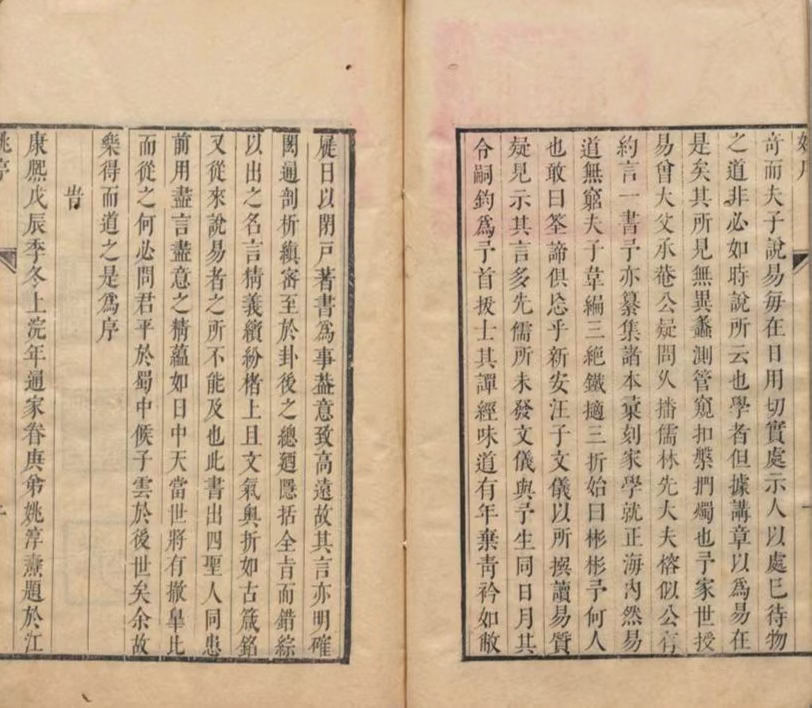 奇而夫子說易每在日用切實處示人以處已待物
之道非必如時說所云也學者但據講章以爲易在
是矣其所見無異蠡測管窺扣槃捫燭也予家世授
易曾大父承菴公疑問久播儒林先大夫榕似公有
約言一書予亦纂集諸本彙刻家學就正海內然易
道無窮夫子韋編三絕鐵擿三折始曰彬彬予何人
也敢曰筌諦俱忘乎新安汪子文儀以所撰讀易質
疑見示其言多先儒所未發文儀與予生同日月其
令嗣鈞爲予首拔士其譚經味道有年棄青衿如敝
屣日以閉戸著書爲事葢意致高遠故其言亦明確
通剖析縝審至於卦後之總廼隱括全旨而錯綜
以出之名言精義繽紛楮上且文氣奥折如古箴銘
又從來說易者之所不能及也此書出四聖人同患
前用盡言盡意之精蘊如日中天當世將有撤臯比
而從之何必問君平於蜀中候子雲於後世矣余故
樂得而道之是爲序
旹
康熙戊辰季冬上浣年通家眷庚弟姚淳燾題於江